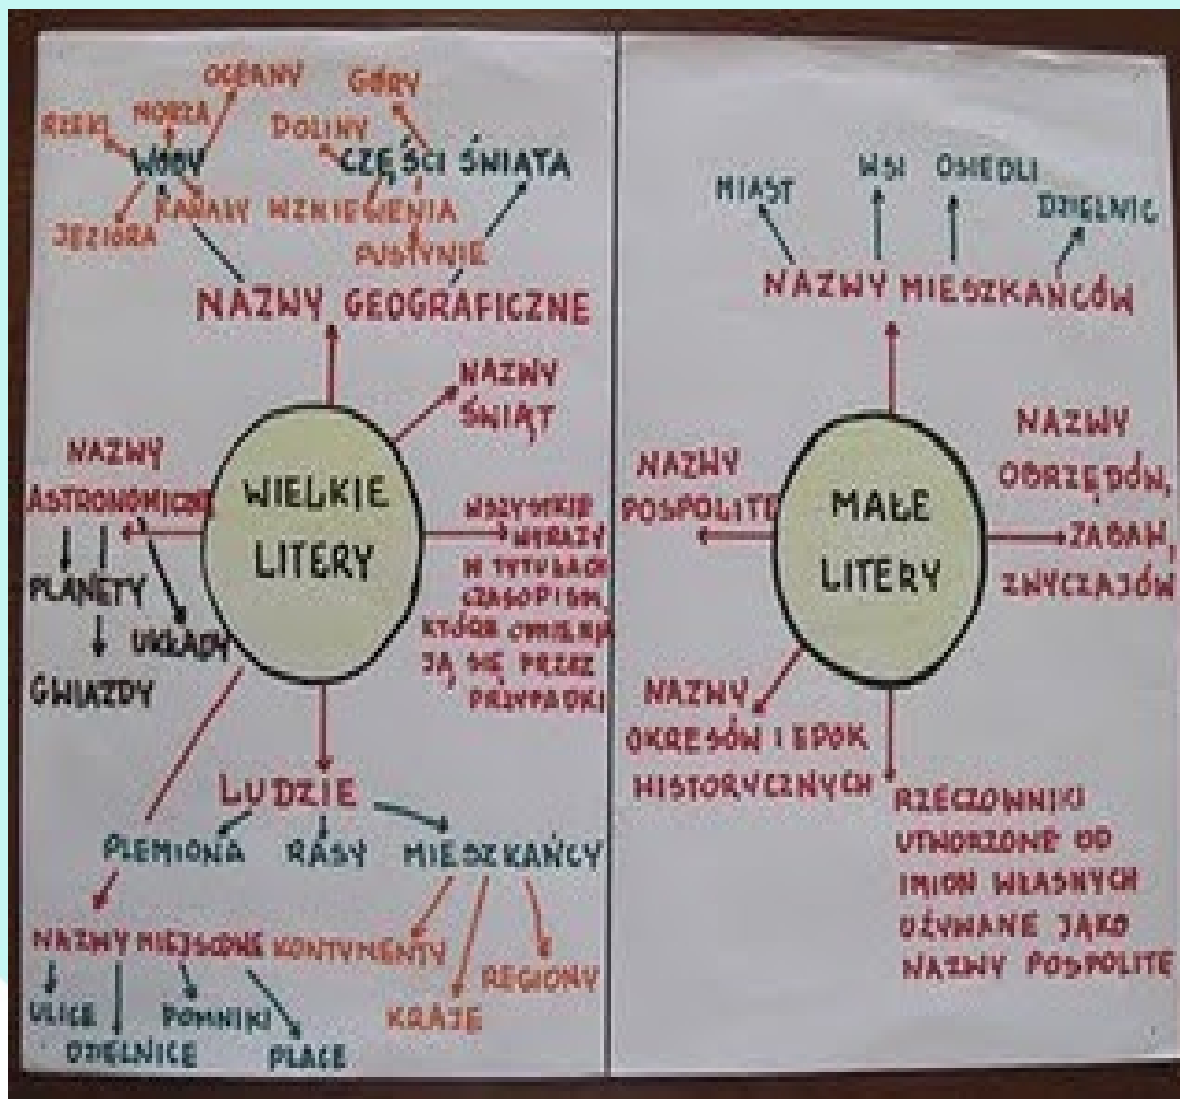 OCEANY GÓRY
RZEKI MORZA DOLINY
WODY CZĘŚCI ŚWIATA
KANAŁY WZNIEWENIA
JEZIORA PUSTYNIE
NAZWY GEOGRAFICZNE
NAZWY
ŚWIĄT
NAZWY
ASTRONOMICZNE
PLANETY
UKŁADY
GWIAZDY
WIELKIE
LITERY
WSZYSTKIE
WYRAZY
W TYTUŁACH
CZASOPISM,
KTÓRE ODMIENIA
JĄ SIĘ PRZEZ
PRZYPADKI
LUDZIE
PLEMIONA RASY MIESZKAŃCY
NAZWY MIEJSCOWE KONTYNENTY
REGIONY
ULICE POMNIKI KRAJE
DZIELNICE PLACE
MIAST WSI OSIEDLI
DZIELNIC
NAZWY MIESZKAŃCÓW
NAZWY
POSPOLITE
MAŁE
LITERY
NAZWY
OBRZĘDÓW,
ZABAW,
ZWYCZAJÓW
NAZWY
OKRESÓW I EPOK
HISTORYCZNYCH
RZECZOWNIKI
UTWORZONE OD
IMION WŁASNYCH
UŻYWANE JAKO
NAZWY POSPOLITE